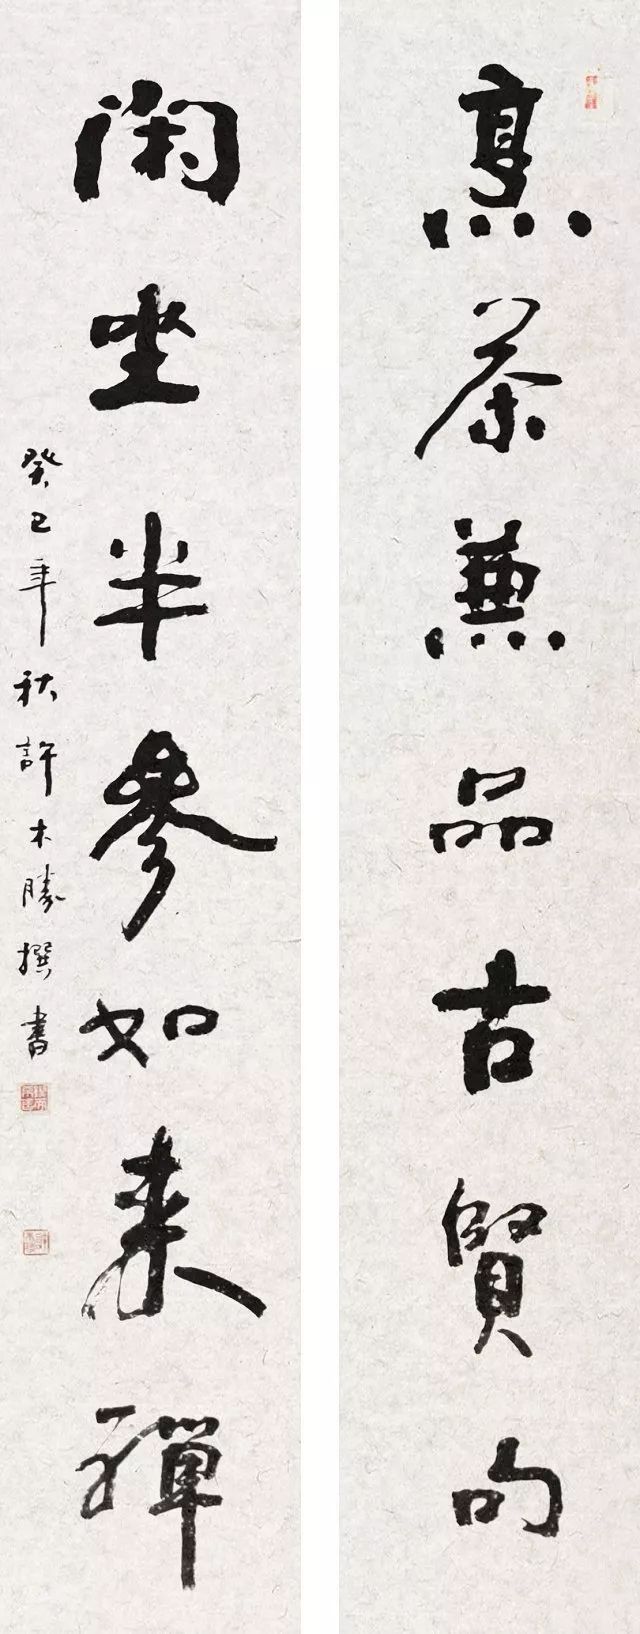 烹茶兼品古賢句
閑坐半參如来禪
癸巳年秋許木勝撰書